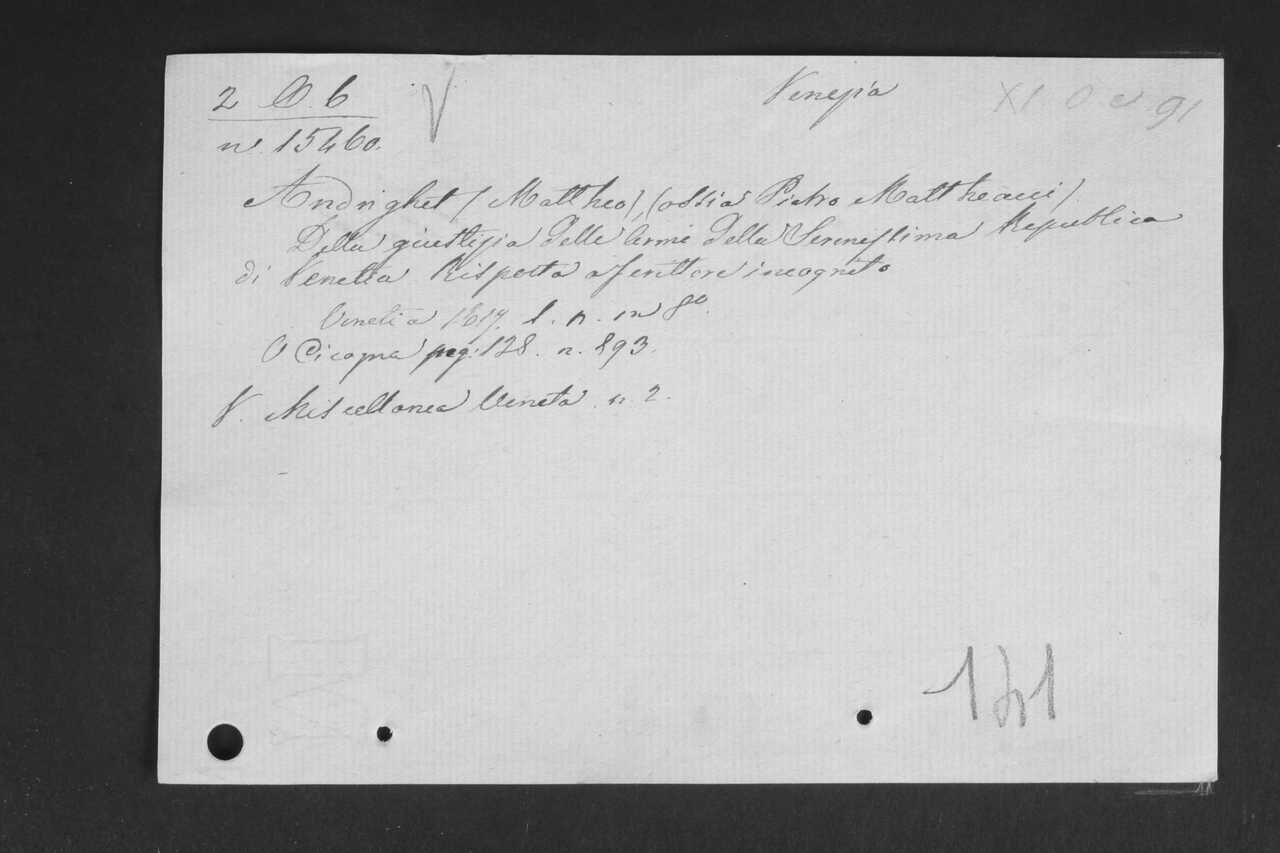 2 O. 6
V
Venezia
XI O e 91
n. 15460.
Andrighet (Mattheo), (ossia Pietro Mattheacci)
Della giustizia delle Armi della Serenissima Republica
di Venetia Risposta a scrittore incognito
Venetia 1617. l. n. in 8o.
V Cicogna pag. 128. n. 893.
V. Miscellanea Veneta n. 2.
141
11